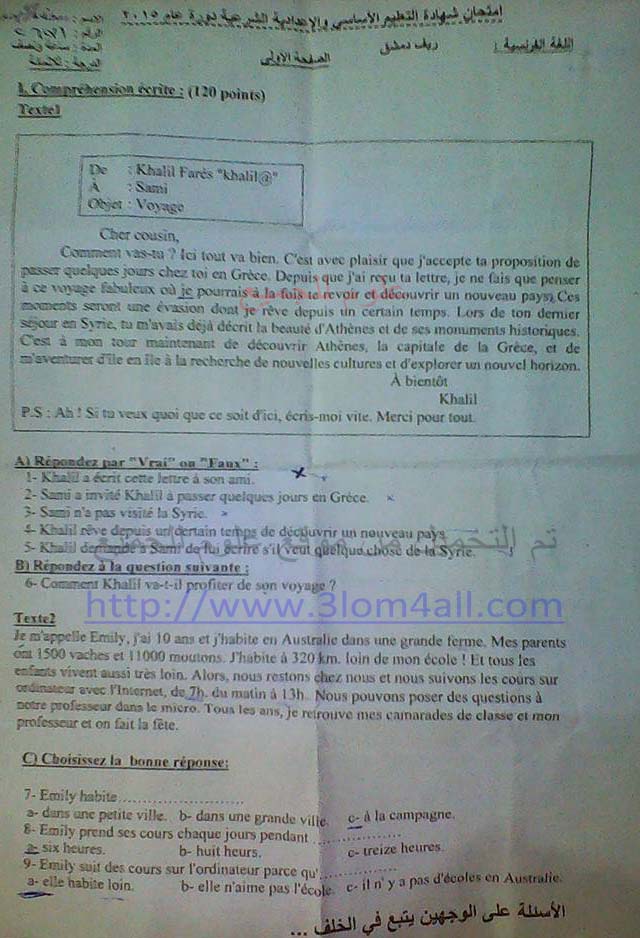 امتحان شهادة التعليم الأساسي والإعدادية الشرعية دورة عام ٢٠١٥
الاسم :
اللغة الفرنسية :
ريف دمشق
الصفحة الأولى
الرقم :
المدة : ساعة ونصف
الدرجة :
I. Compréhension écrite : (120 points)
Texte1
De : Khalil Farès "khalil@"
À : Sami
Objet : Voyage
Cher cousin,
Comment vas-tu ? Ici tout va bien. C'est avec plaisir que j'accepte ta proposition de
passer quelques jours chez toi en Grèce. Depuis que j'ai reçu ta lettre, je ne fais que penser
à ce voyage fabuleux où je pourrais à la fois te revoir et découvrir un nouveau pays. Ces
moments seront une évasion dont je rêve depuis un certain temps. Lors de ton dernier
séjour en Syrie, tu m'avais déjà décrit la beauté d'Athènes et de ses monuments historiques.
C'est à mon tour maintenant de découvrir Athènes, la capitale de la Grèce, et de
m'aventurer d'île en île à la recherche de nouvelles cultures et d'explorer un nouvel horizon.
À bientôt
Khalil
P.S : Ah ! Si tu veux quoi que ce soit d'ici, écris-moi vite. Merci pour tout.
A) Répondez par "Vrai" ou "Faux" :
1- Khalil a écrit cette lettre à son ami.
2- Sami a invité Khalil à passer quelques jours en Grèce.
3- Sami n'a pas visité la Syrie.
4- Khalil rêve depuis un certain temps de découvrir un nouveau pays.
5- Khalil demande à Sami de lui écrire s'il veut quelque chose de la Syrie.
تم التحميل من
B) Répondez à la question suivante :
6- Comment Khalil va-t-il profiter de son voyage ?
http://www.3lom4all.com
Texte2
Je m'appelle Emily, j'ai 10 ans et j'habite en Australie dans une grande ferme. Mes parents
ont 1500 vaches et 11000 moutons. J'habite à 320 km. loin de mon école ! Et tous les
enfants vivent aussi très loin. Alors, nous restons chez nous et nous suivons les cours sur
ordinateur avec l'Internet, de 7h. du matin à 13h. Nous pouvons poser des questions à
notre professeur dans le micro. Tous les ans, je retrouve mes camarades de classe et mon
professeur et on fait la fête.
C) Choisissez la bonne réponse:
7- Emily habite ....................
a- dans une petite ville. b- dans une grande ville. c- à la campagne.
8- Emily prend ses cours chaque jours pendant ....................
a- six heures. b- huit heurs. c- treize heures.
9- Emily suit des cours sur l'ordinateur parce qu'....................
a- elle habite loin. b- elle n'aime pas l'école. c- il n' y a pas d'écoles en Australie.
الأسئلة على الوجهين يتبع في الخلف ...